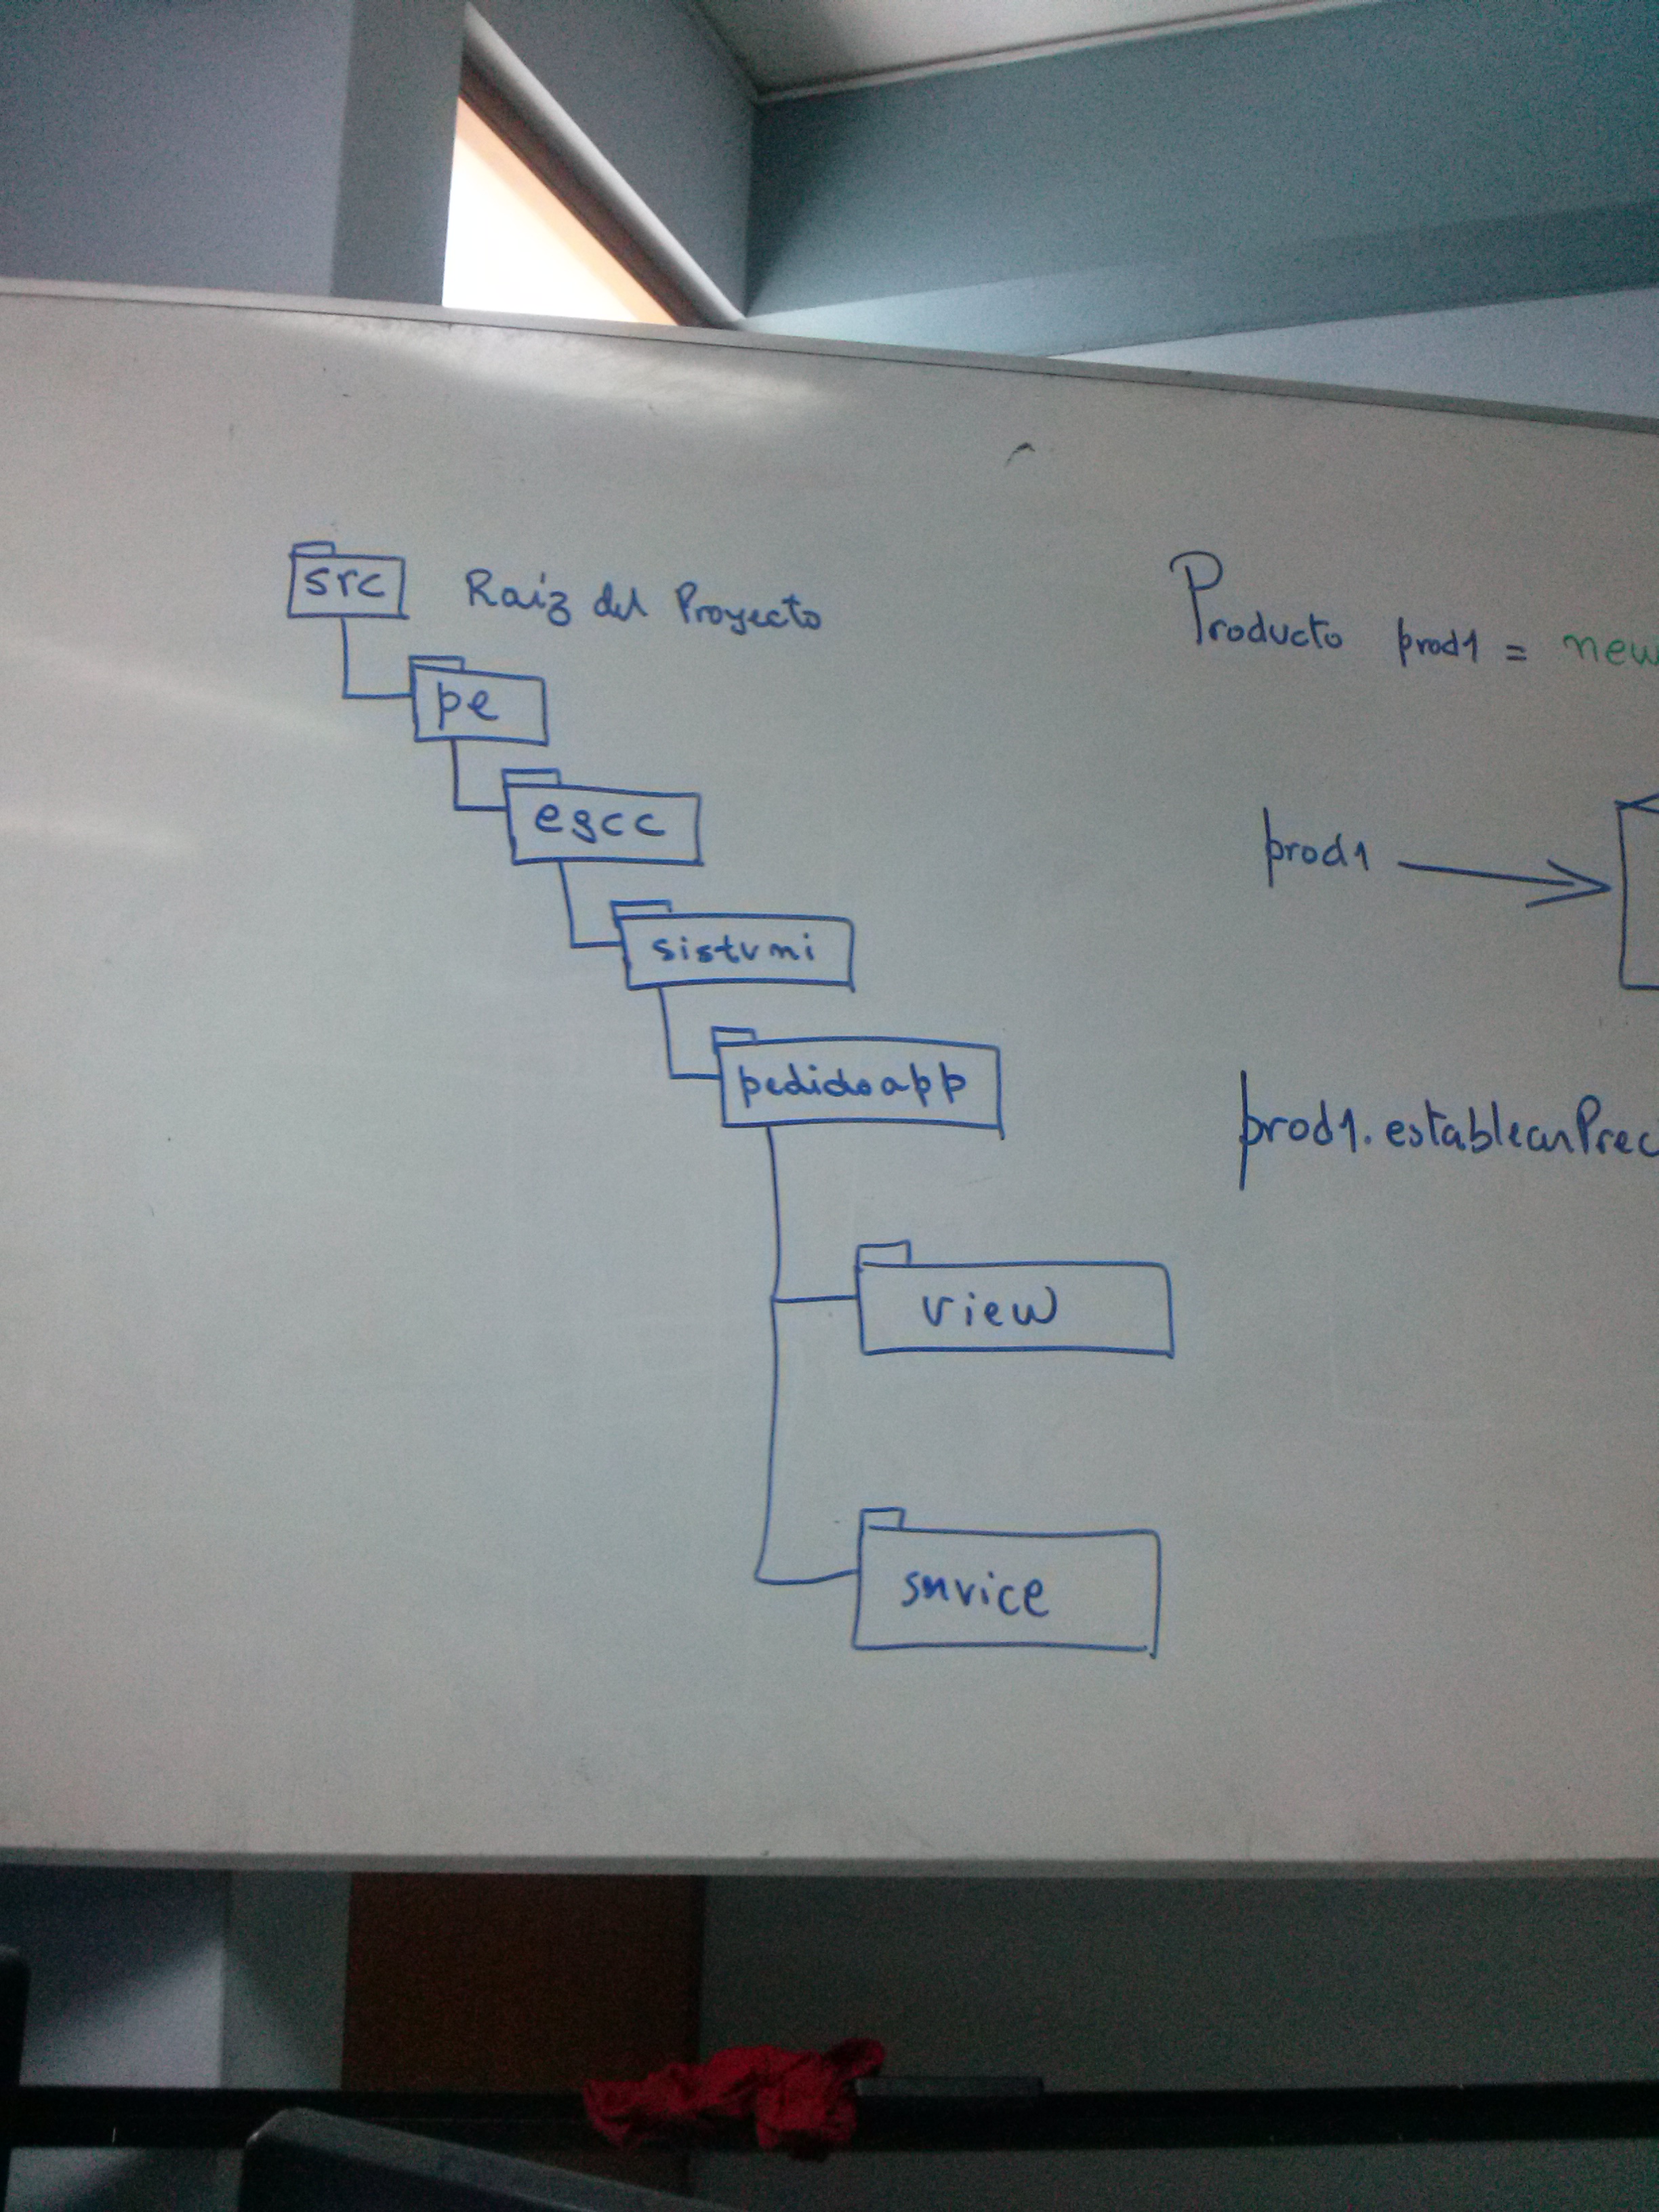 src Raiz del Proyecto
pe
egcc
sistuni
pedidoapp
view
service
Producto prod1 = new
prod1
prod1.establecerPrec